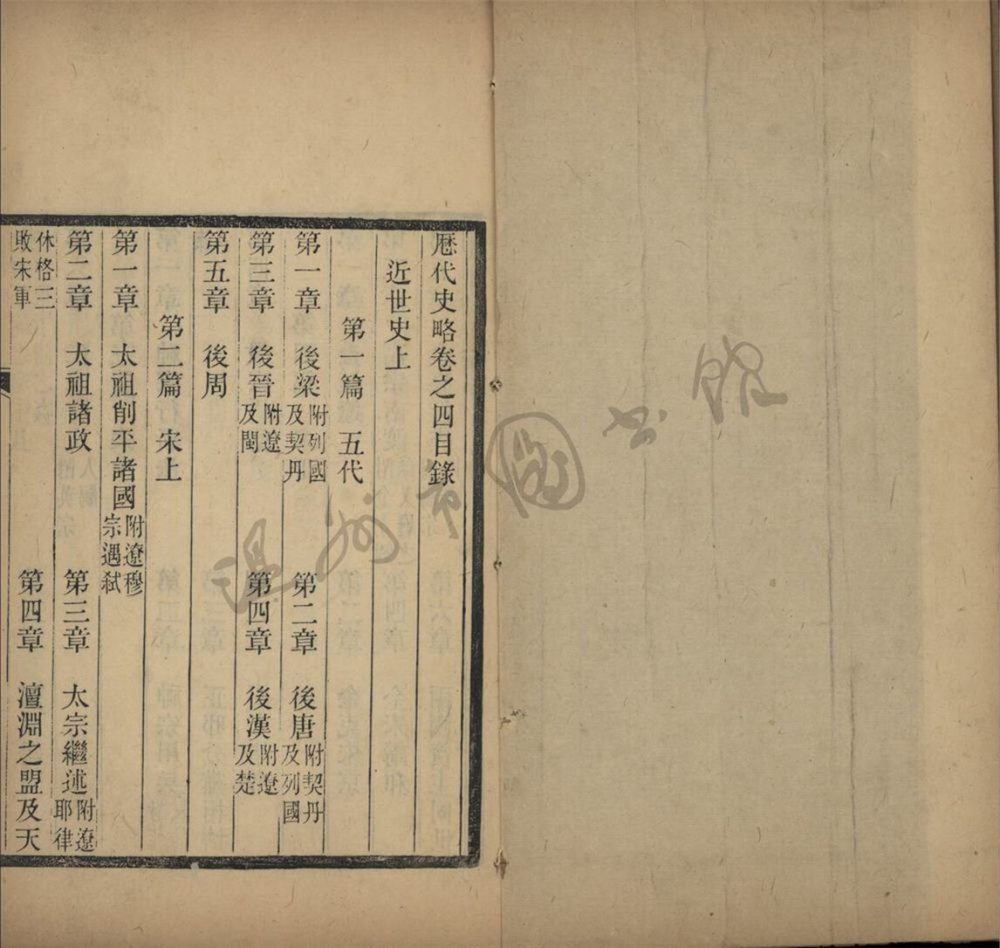 歷代史略卷之四目錄
近世史上
第一篇 五代
第一章 後梁附列國及契丹 第二章 後唐附契丹及列國
第三章 後晉附遼及閩 第四章 後漢附遼及楚
第五章 後周
第二篇 宋上
第一章 太祖削平諸國附遼穆宗遇弒
第二章 太祖諸政 第三章 太宗繼述附遼耶律
休格三敗宋軍 第四章 澶淵之盟及天
温州市圖書館